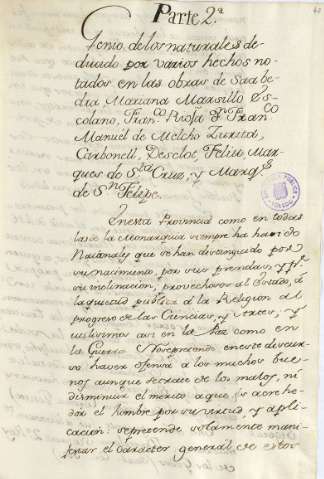 Parte 2.a
Genio de los naturales de-
ducido por varios hechos no-
tados en las obras de Saabe-
dra Mariana Marsillo Es-
colano, Franco Rioja Dn Franco
Manuel de Melcho Zurita,
Carbonell, Desclot, Feliu Mar-
ques de Sta Cruz, y Marqs
de Sn Felipe.
Enesta Provincia como en todas
las de la Monarquia siempre ha havido
Nacionales que se han distinguido por
su nacimiento, por sus prendas, y pr
su inclinacion, provechosos al Estado, á
la quietud publica á la Religion al
progreso de las Ciencias, y Artes, y
utilisimos asi en la Paz como en
la Guerra. No se pretende en este discur-
so hacer ofensa a los muchos bue-
nos aunque se trate de los malos, ni
disminuir el merito a que se
el hombre por su virtud, y apli-
cacion: se pretende solamente mani-
festar el caracter general de estos